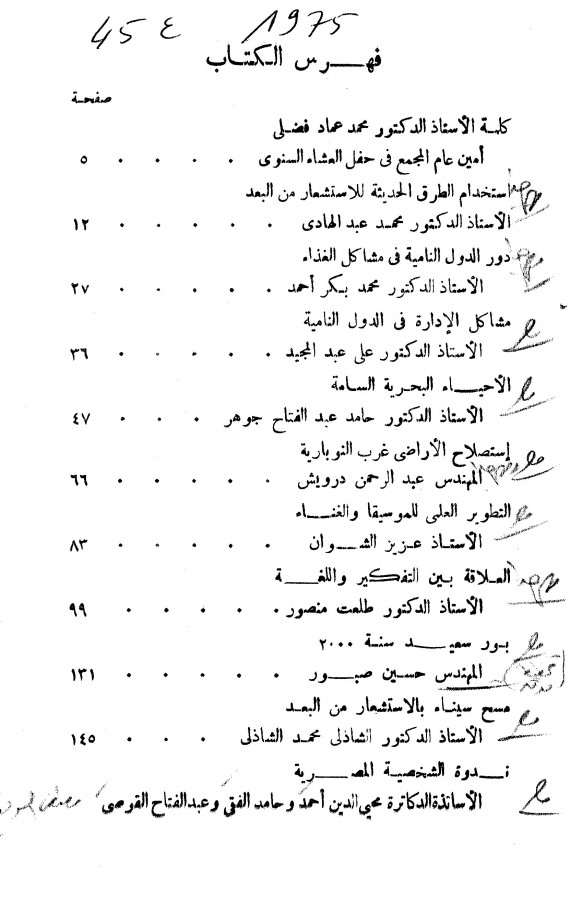 45 ع 1975
فهرس الكتاب
صفحة
كلمة الأستاذ الدكتور محمد عماد فضلى
أمين عام المجمع فى حفل العشاء السنوى . . . . ٥
إستخدام الطرق الحديثة للاستشعار من البعد
الأستاذ الدكتور محمد عبد الهادى . . . . . ١٢
دور الدول النامية فى مشاكل الغذاء
الأستاذ الدكتور محمد بكر أحمد . . . . . ٢٧
مشاكل الإدارة فى الدول النامية
الأستاذ الدكتور على عبد المجيد . . . . . ٣٦
الأحياء البحرية السامة
الأستاذ الدكتور حامد عبد الفتاح جوهر . . . ٤٧
إستصلاح الأراضى غرب النوبارية
المهندس عبد الرحمن درويش . . . . . ٦٦
التطوير العلمى للموسيقا والغناء
الأستاذ عزيز الشوان . . . . . ٨٣
العلاقة بين التفكير واللغة
الأستاذ الدكتور طلعت منصور . . . . . ٩٩
بور سعيد سنة ٢٠٠٠
المهندس حسين صبور . . . . . ١٣١
مسح سيناء بالاستشعار من البعد
الأستاذ الدكتور الشاذلى محمد الشاذلى . . . ١٤٥
ندوة الشخصية المصرية
الأساتذة الدكاترة محيى الدين أحمد وحامد الفقى وعبد الفتاح القرصى